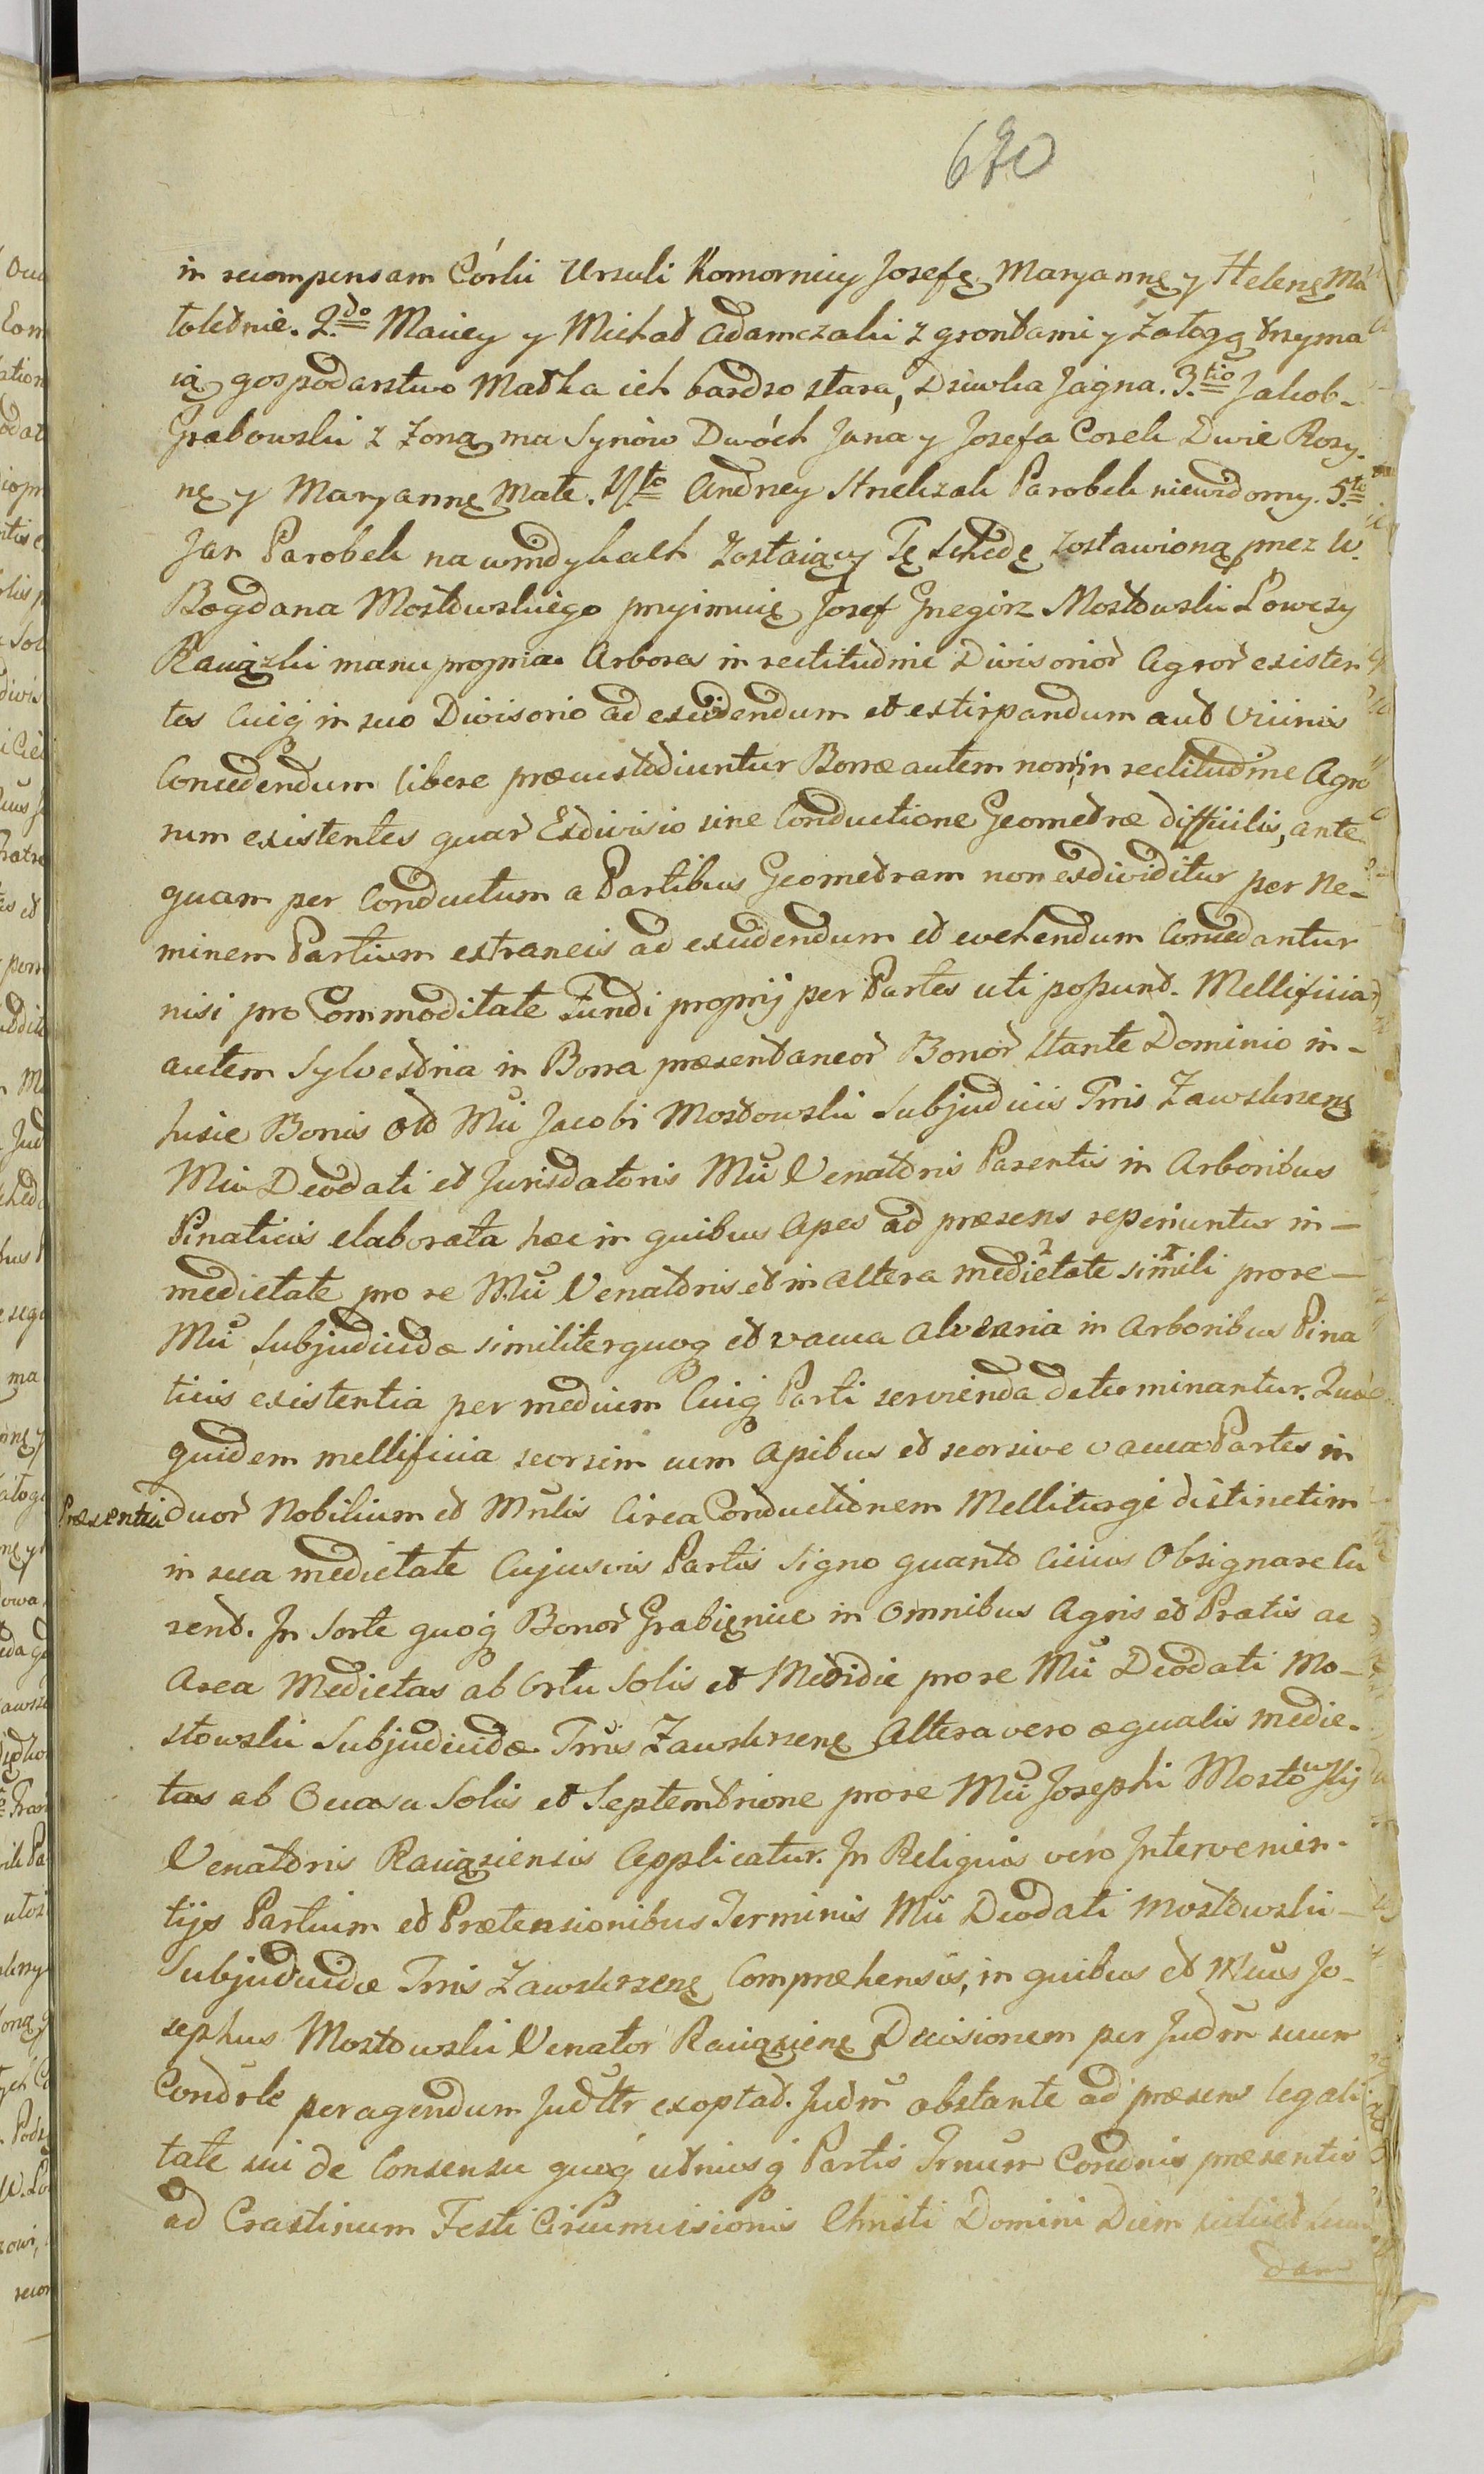 680
in recompensam Córki Urszuli Komornicy Josefę Maryannę y Helenę Ma
łoletnie. 2.do Maciey y Michał Adamczaki z grontami y Załogą trzyma
ią gospodarstwo Matka ich bardzo stara, Dziwka Jagna. 3.tio Jakob
Grabowski z Zoną ma Synów Dwóch Jana y Josefa Corek Dwie Rozy-
nę y Maryannę Małe. 4.to Andrzey Strzelczak Parobek niewidomy. 5.to
Jan Parobek na wendykach Zostaiący Tę Schedę zostawioną przez W.
Bogdana Mostowskiego przyimuię Josef Grzegirz Mostowski Łowczy
Raciązki manu propria. Arbores in rectitudine Divisorior Agror existen
tes Cuiq in suo Divisorio ad excidendum et extirpandum aut Vicinis
Concedendum libere præcustodiuntur Borræ autem non in rectitudine Agro
rum existentes quar Exdivisio sine Conductione Geometræ difficilis, ante
quam per Conductum a Partibus Geometram non exdividitur per Ne-
minem Partium extraneis ad exudendum et evehendum Concedantur
nisi pro Commoditate Fundi proprij per Partes uti possunt. Mellificia
autem Sylvestria in Borra præsentaneor Bonor stante Dominio in-
hisce Bonis Olo Mci Jacobi Mostowski Subjudicis Trris Zawskrzenę
Mci Deodati et Jurisdatoris Mci Venatoris Parentis in Arboribus
Pinaticis elaborata hæc in quibus Apes ad præsens reperiuntur in-
medietate pro re Mci Venatoris et in altera medietate simili pro re-
Mci Subjudicidæ similiter quoq et vacua Alvearia in Arboribus Pina
ticis existentia per medium Cuiq Parti servienda determinantur. Quæ
quidem mellificia seorsim cum Apibus et seorsive vacua Partes in
Præsentia duor Nobilium et Mrlis Circa Conductionem Melliturgi distinctim
in sua medietate Cujusvis Partis Signo quanto Cicius Obsignare Cu
rent. In Sorte quoq Bonor Grabięnice in Omnibus Agris et Pratis ac
Area Medietas ab Ortu Solis et Meridie pro re Mci Deodati Mo-
stowski Subjudicidæ Trris Zawskrzenę Altera vero æqualis medie-
tas ab Occasu Solis et Septemtrione pro re Mci Josephi Mostowskij
Venatoris Raciąziensis Applicatur. In Reliquis vero Intervenien-
tijs Partium et Prætensionibus Terminis Mci Deodati Mostowski-
Subjudicidæ Trris Zawskrzenę Compræhensis, in quibus et Mcus Jo-
sephus Mostowski Venator Raciązienę Decisionem per Judm suum
Condrle peragendum Judtlr exoptat. Judm obstante ad præsens legali
tate sui de Consensu quoq utriusq Partis Trnum Condnis præsentis
ad Crastinum Festi Circumcisionis Christi Domini Diem scilicet secun
dam